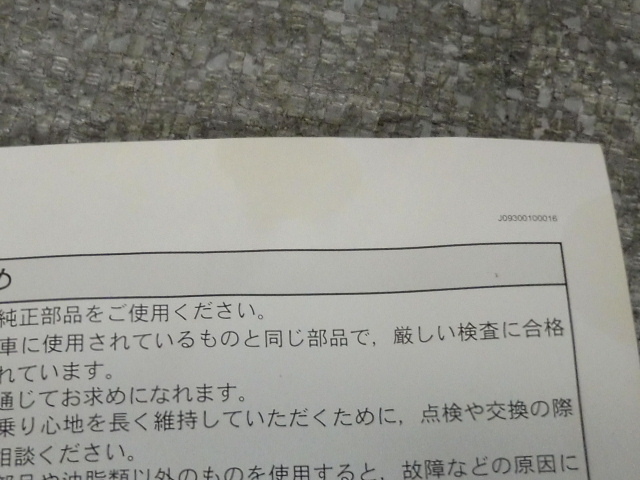 J09300100016
め
純正部品をご使用ください。
車に使用されているものと同じ部品で，厳しい検査に合格
れています。
通じてお求めになれます。
乗り心地を長く維持していただくために，点検や交換の際
相談ください。
部品や油脂類以外のものを使用すると，故障などの原因に